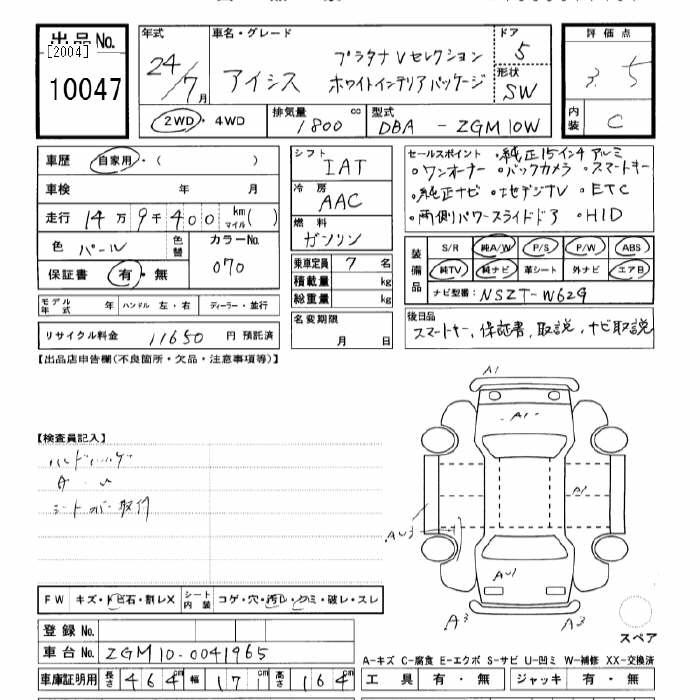 出品No. [2004] 10047
年式 24/7月
車名・グレード アイシス プラタナVセレクション
ホワイトインテリアパッケージ
ドア 5
形状 SW
評価点 3.5
内装 C
2WD・4WD
排気量 1800 cc
型式 DBA - ZGM10W
車歴 自家用・( )
車検 年 月
走行 14万9千400 km マイル( )
色 パール 色替
カラーNo. 070
保証書 有・無
モデル年式 年 ハンドル 左・右 ディーラー・並行
リサイクル料金 11650 円 預託済
シフト IAT
冷房 AAC
燃料 ガソリン
乗車定員 7 名
積載量 kg
総重量 kg
名変期限 月 日
セールスポイント ・純正15インチアルミ
・ワンオーナー ・バックカメラ ・スマートキー
・純正ナビ ・フルセグデジTV ・ETC
・両側パワースライドドア ・HID
装備品 S/R 純A/W P/S P/W ABS
純TV 純ナビ 革シート 外ナビ エアB
ナビ型番: NSZT-W62G
後日品
スマートキー, 保証書, 取説, ナビ取説
【出品店申告欄(不良箇所・欠品・注意事項等)】
【検査員記入】
シートカバー取付
A1
A1
A1
AU3
AU1
A3 A3
スペア
FW キズ・トビ石・割レX シート内装 コゲ・穴・汚レ・シミ・破レ・スレ
登録No.
車台No. ZGM10-0041965
車庫証明用 長さ 464cm 幅 171cm 高さ 164cm
A-キズ C-腐食 E-エクボ S-サビ U-凹ミ W-補修 XX-交換済
工具 有・無 ジャッキ 有・無